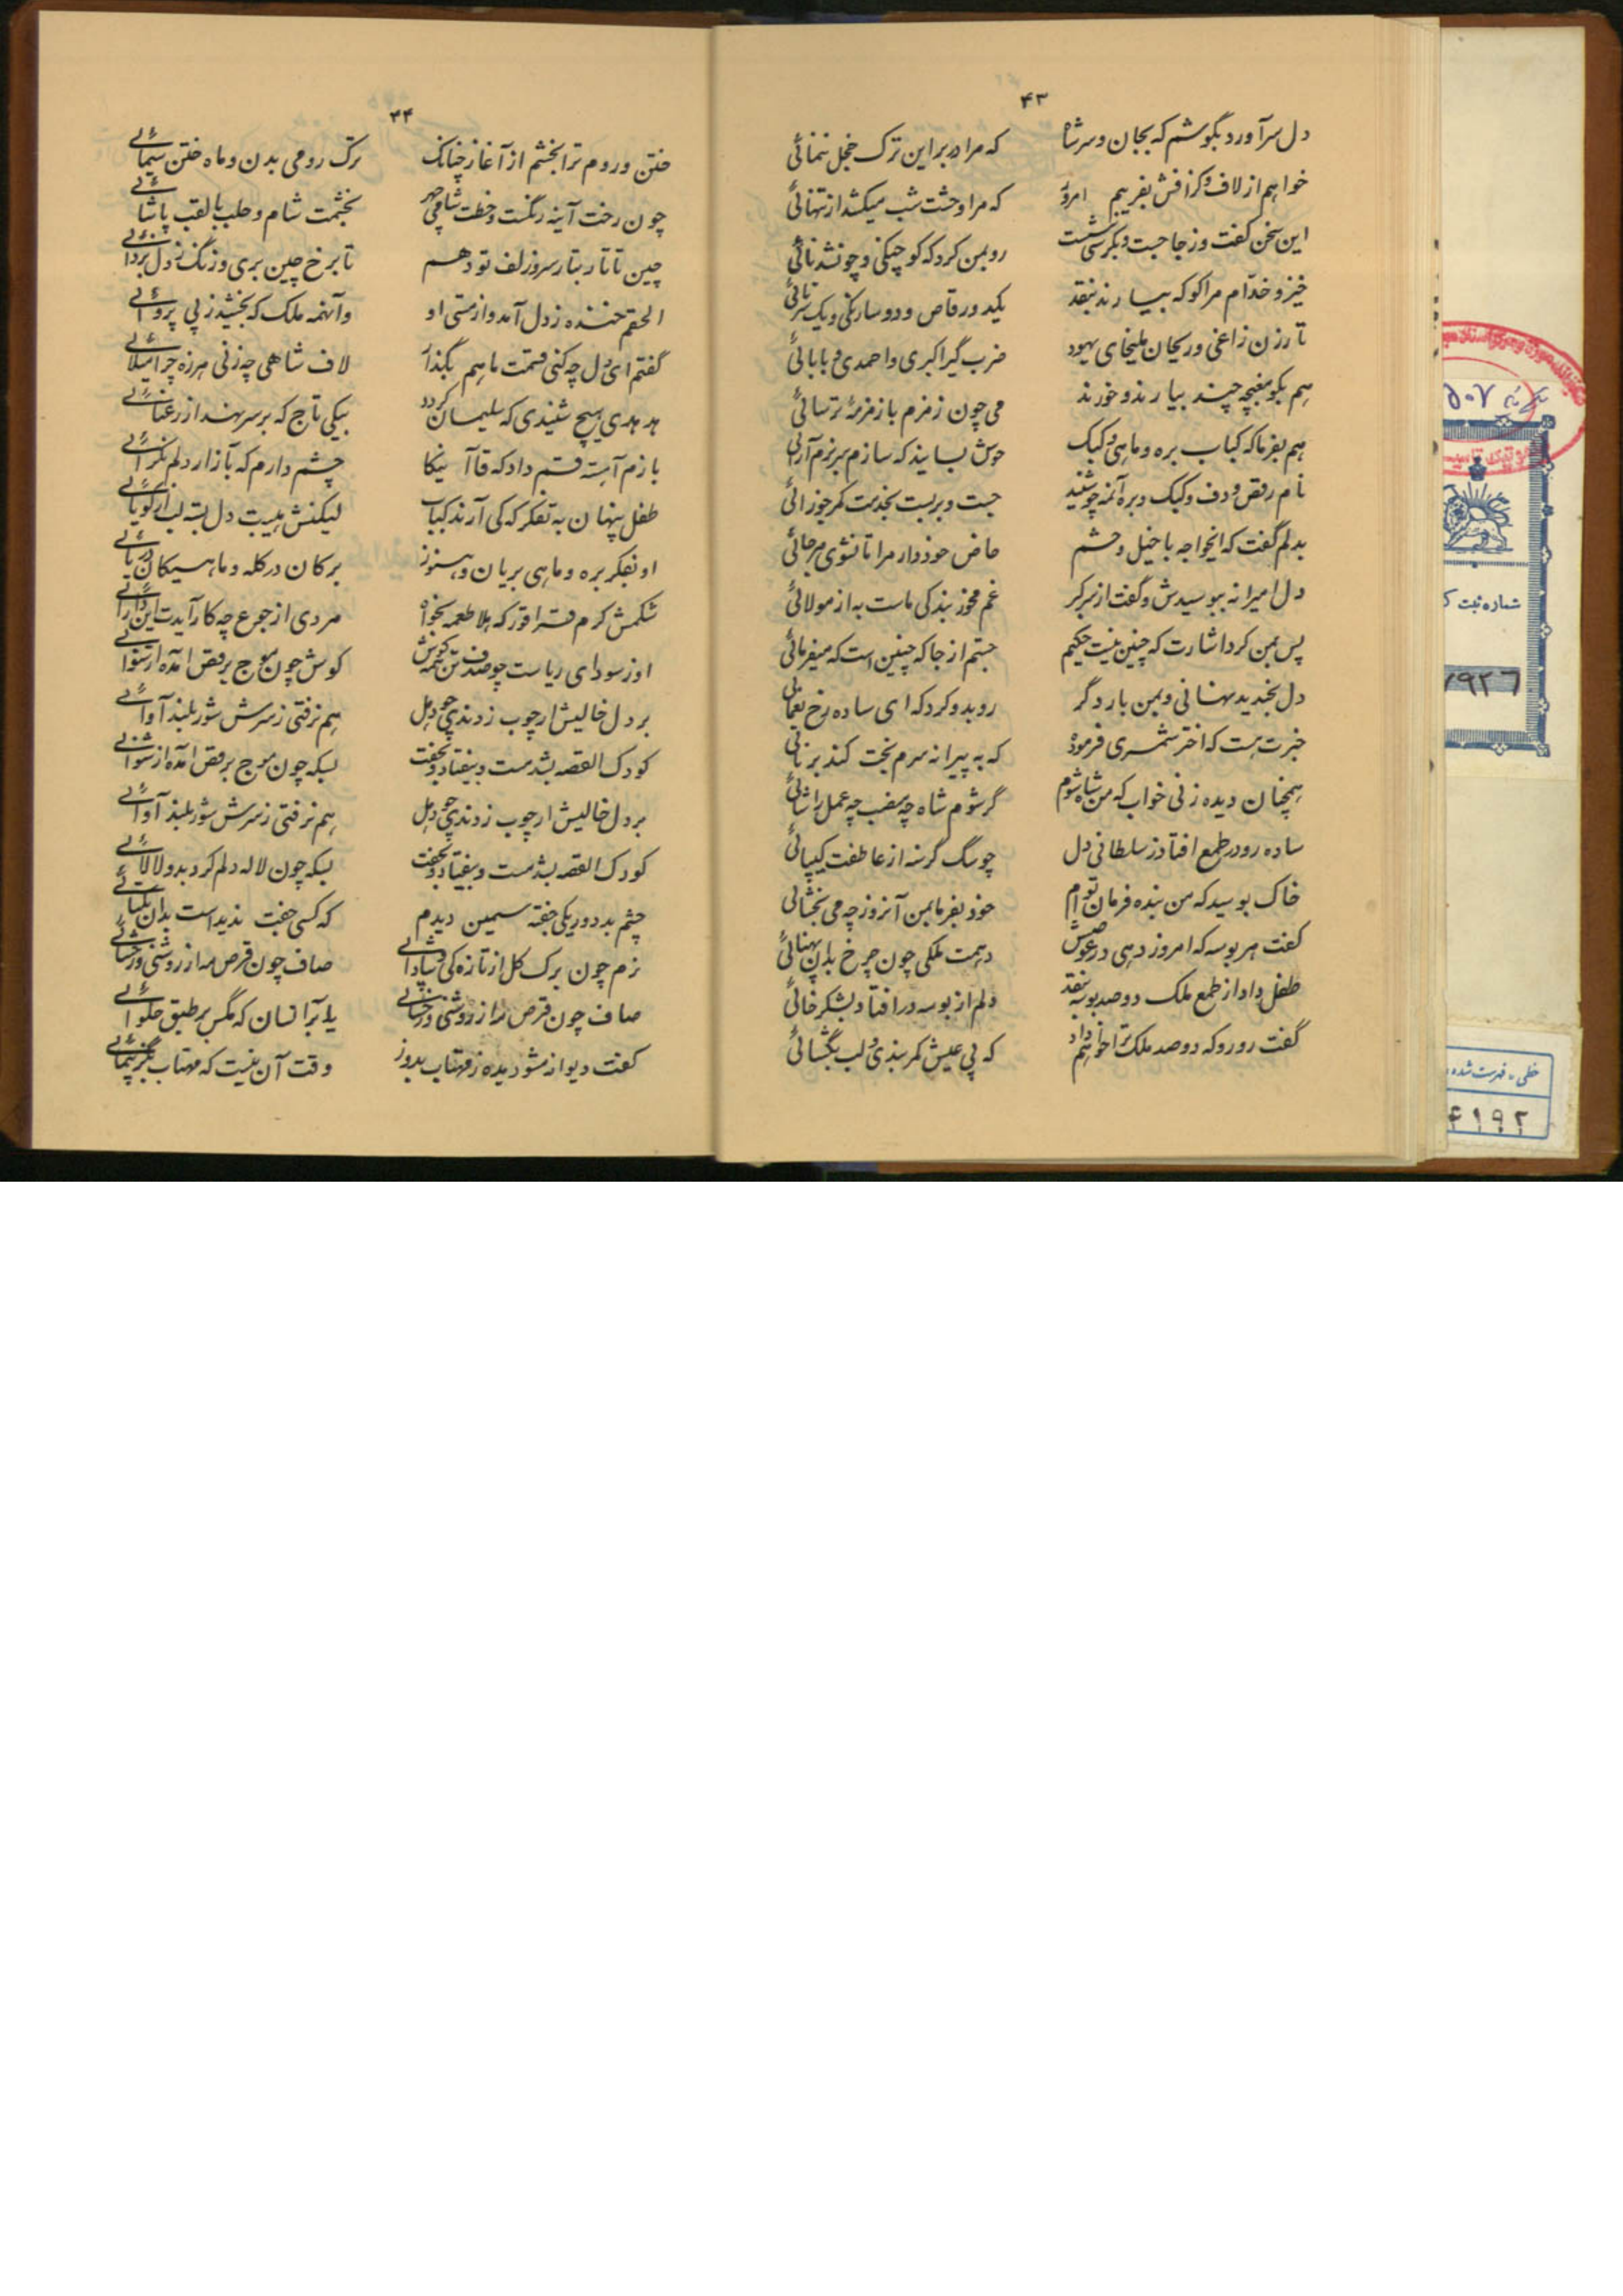 ۴۳
دل سر آورد بگوشم که بجان و سر شاه که مرا در بر این ترک خجل ننمائی
خواهم از لاف و گزافش بفریبم امروز که مرا وحشت شب میکشد از تنهائی
این سخن گفت و ز جا جست و بکرسی بنشست رو بمن کرد که کو چنگی و چونشد نائی
خیز و خدّام مرا کو که بیارند بنقد یکدو رقاص و دو سارنگی و یک سرنائی
تار زن زاغی و ریحان ملیحای یهود ضرب گیر اکبری و احمدی و بابائی
هم بگو مغبچه چند بیارند و خورند می چون زمزم با زمزمهٔ ترسائی
هم بفرما که کباب بره و ماهی و کبک خوش بسایند که سازم سر بزم آرائی
نام رقص و دف و کبک و بره آنمه چو شنید جست و بر بست بخدمت کمر جوزائی
بدلم گفت که ایخواجه با خیل و حشم خاص خود دار مرا تا نشوی هر جائی
دل امیرانه ببوسیدش و گفت از سر کبر غم مخور بندگی ماست به از مولائی
پس بمن کرد اشارت که چنین نیست حکیم جستم از جا که چنین است که میفرمائی
دل بخندید نهانی و بمن بار دگر رو بدو کرد که ای ساده رخ یغمائی
خبرت هست که اختر شمری فرموده که به پیرانه سرم بخت کند برنائی
همچنان دیده زنی خواب که من شاه شوم گر شوم شاه چه منصب چه عمل را شائی
ساده رو در طمع افتاد ز سلطانی دل چو سگ گرسنه از عاطفت کیپائی
خاک بوسید که من بنده فرمان توام خود بفرما بمن آنروز چه می بخشائی
گفت هر بوسه که امروز دهی در عوضش دهمت ملکی چون چرخ بدان پهنائی
طفل داد از طمع ملک دو صد بوسه نقد دلم از بوسه در افتاد بشکر خائی
گفت رو رو که دو صد ملک ترا خواهم داد که پی عیش کمر بندی و لب بگشائی
۴۴
ختن و روم ترا بخشم از آغاز چنانک ترک رومی بدن و ماه ختن سیمائی
چون رخت آینه رنگست و خطت شامی چهر بخشمت شام و حلب با لقب پاشائی
چین تا تار بتار سر و زلف تو دهم تا برخ چین بری و زنگ ز دل بزدائی
الحقم خنده ز دل آمد و از مستی او و آنهمه ملک که بخشید ز بی پروائی
گفتم ای دل چه کنی قسمت ما هم بگذار لاف شاهی چه زنی هرزه چرا میلائی
هدهدی هیچ شنیدی که سلیمان گردد بیکی تاج که بر سر نهد از رعنائی
بازم آهسته قسم داد که قاآنیکا چشم دارم که بآزار دلم نگرائی
طفل پنهان به تفکر که کی آرند کباب لیکنش هیبت دل بسته لب از گویائی
او بفکر بره و ماهی بریان و هنوز بره کان در گله و ماهیکان دریائی
شکمش گرم قراقور که هلا طعمه بخواه مردی از جوع چه کار آیدت این دارائی
او ز سودای ریاست چو صدف تن همه گوش گوش چون موج برقص آمده از شنوائی
بر دل خالیش ار چوب زدندی چو دهل هم نرفتی ز سرش شور بلند آوائی
کودک القصه بشد مست و بیفتاد و بخفت بسکه چون موج برقص آمده از شنوائی
بر دل خالیش ار چوب زدندی چو دهل هم نرفتی ز سرش شور بلند آوائی
کودک القصه بشد مست و بیفتاد و بخفت بسکه چون لاله دلم کرد بدو لالائی
چشم بد دور یکی جفته سیمین دیدم که کسی جفت ندیداست بدان یکتائی
نرم چون برک گل از تازه گی و شادابی صاف چون قرص مه از روشنی و رخشائی
صاف چون قرص مه از روشنی و رخشائی یله بر آنسان که مگس بر طبق حلوائی
گفت دیوانه مشو دیده ز مهتاب بدوز وقت آن نیست که مهتاب بگز پیمائی
شماره ثبت ک
خطی، فهرست شده
۴۱۹۲